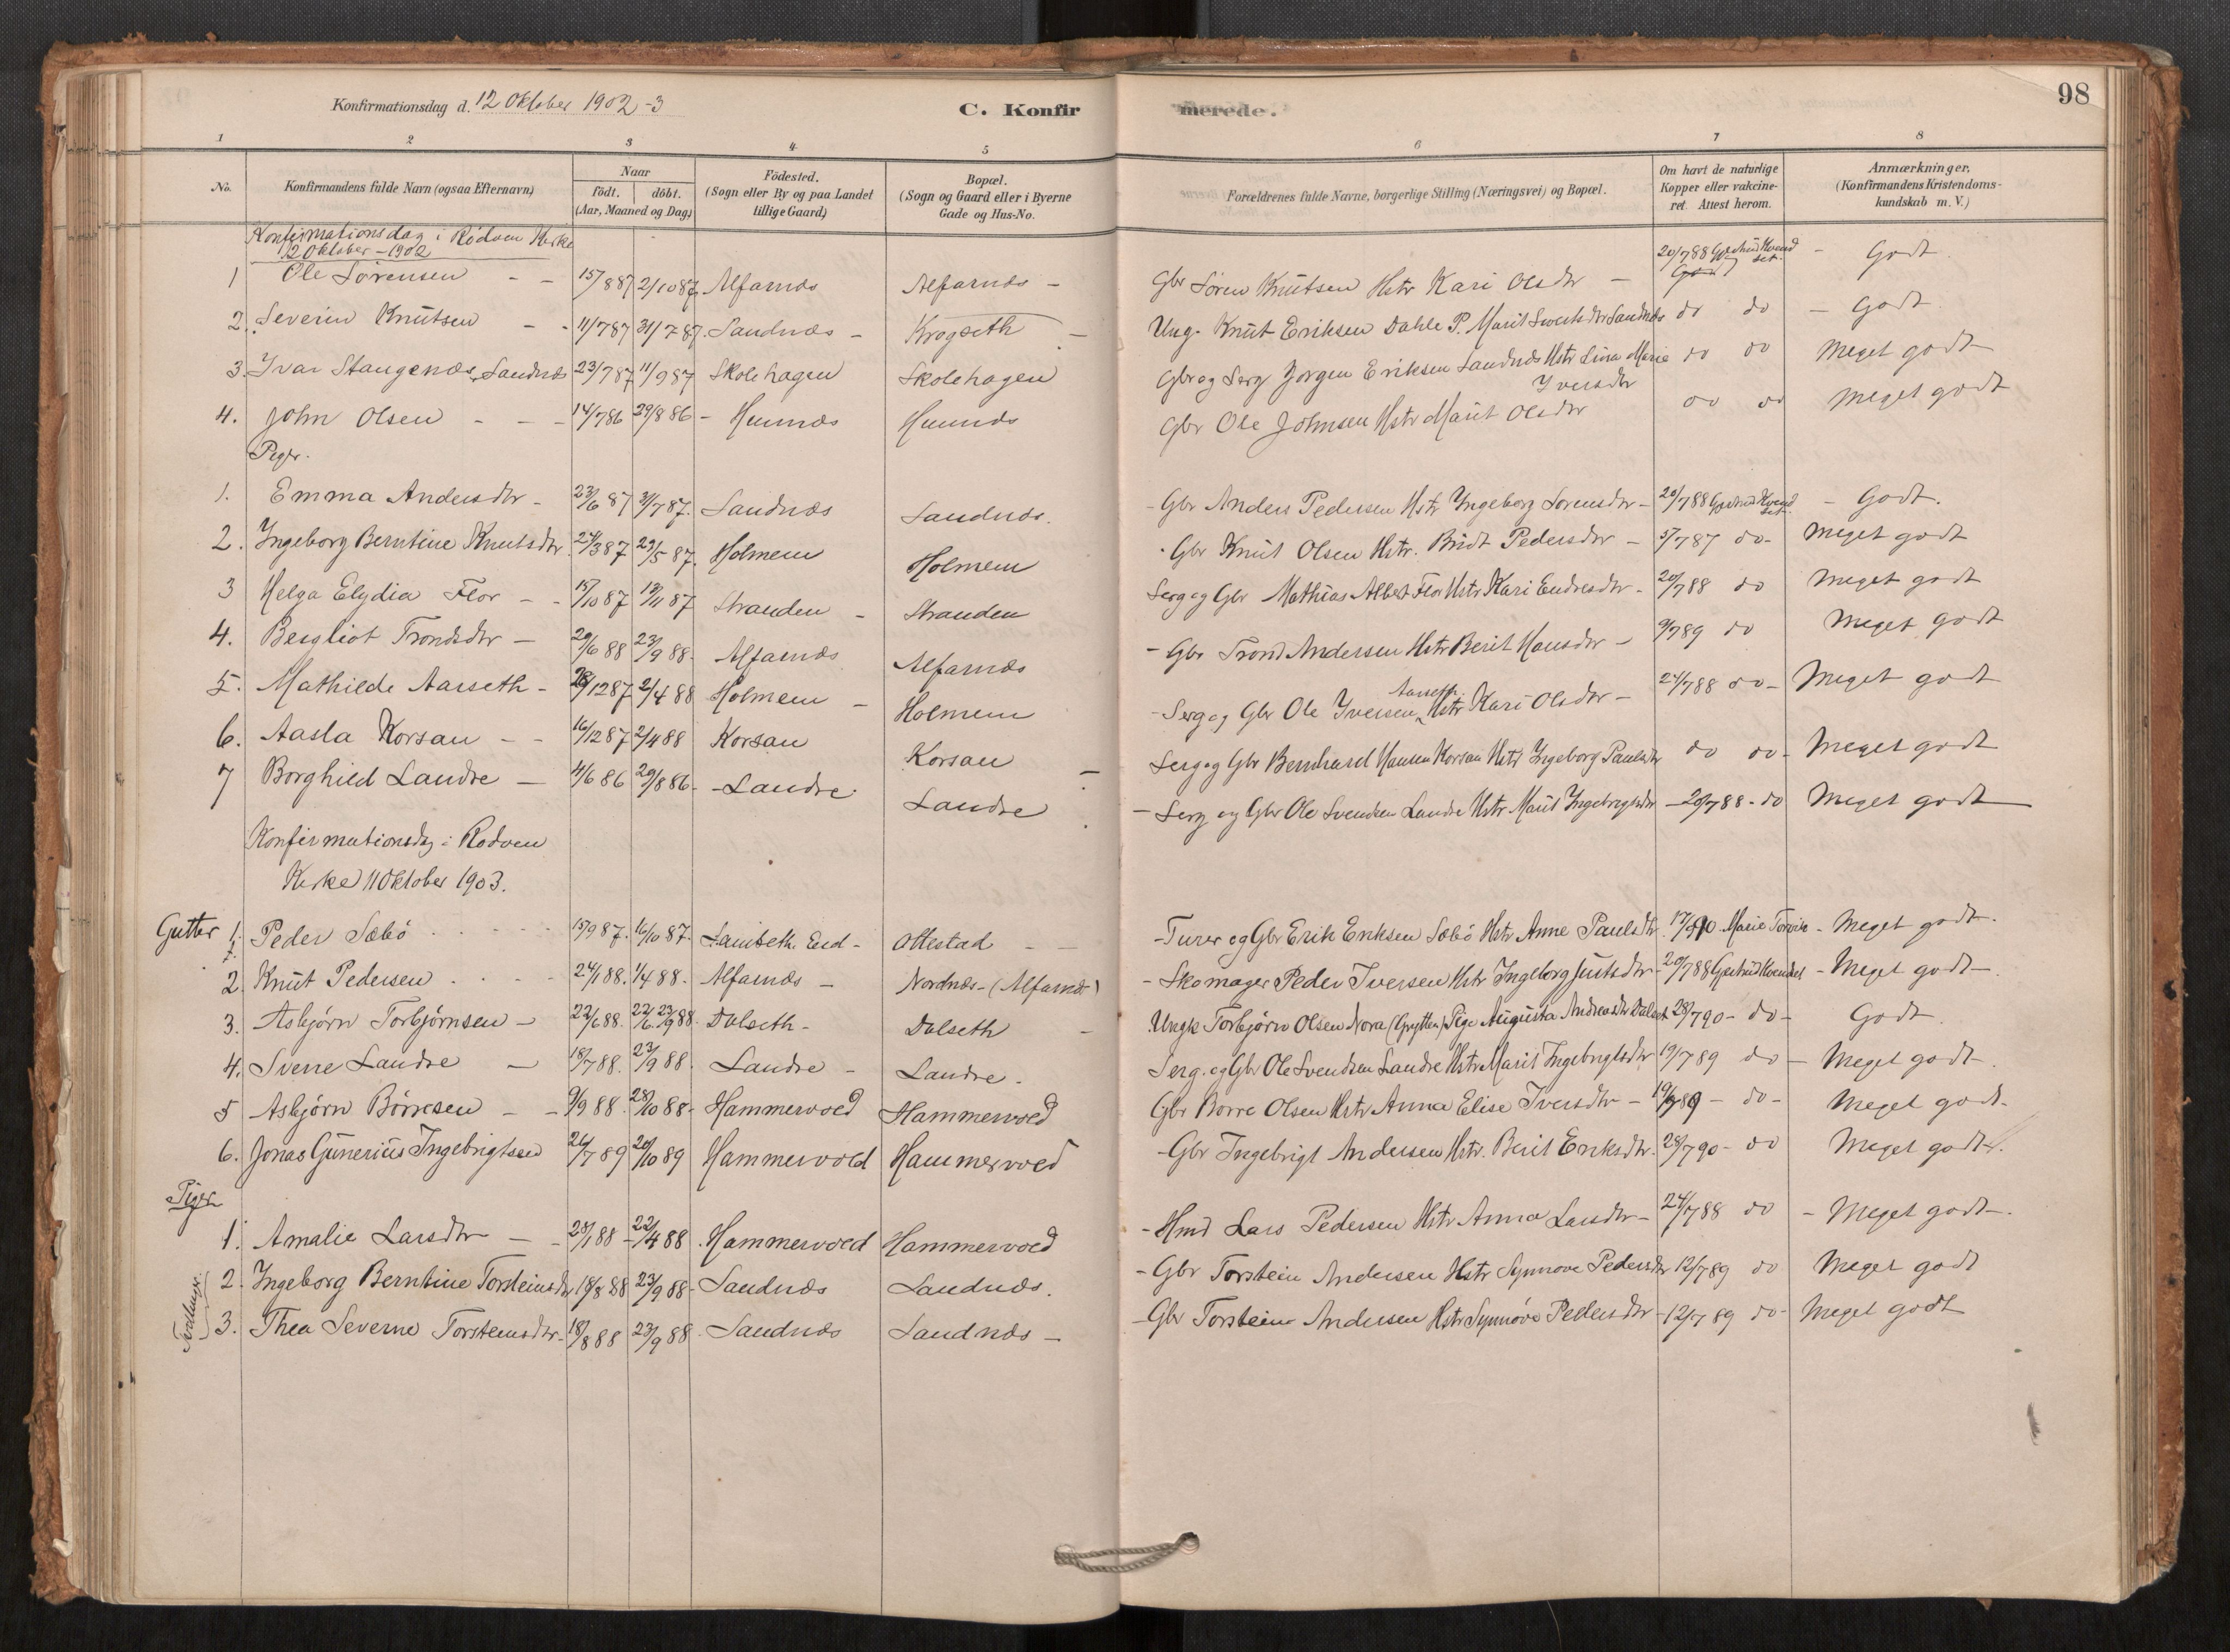 98
Konfirmationsdag d. 12 Oktober 1902-3
C. Konfirmerede.
1 2 3 4 5 6 7 8
No. Konfirmandens fulde Navn (ogsaa Efternavn) Naar födt. döbt. (Aar, Maaned og Dag) Födested. (Sogn eller By og paa Landet tillige Gaard) Bopæl. (Sogn og Gaard eller i Byerne Gade og Hus-No. Forældrenes fulde Navne, borgerlige Stilling (Næringsvei) og Bopæl. Om havt de naturlige Kopper eller vakcineret. Attest herom. Anmærkninger. (Konfirmandens Kristendomskundskab m. V.)
Konfirmationsdag i Rödven Kirke
12 Oktober - 1902
1 Ole Sörensen - - 15/887 2/1087 Alfarnæs Alfarnæs - Gbr Sören Knutsen Hstr Kari Olsdtr - 20/788 Gjertrud Kvendset - Godt.
2. Severin Knutsen - - 11/787 31/787. Sandnæs - Krogseth - Ung. Knut Eriksen Dahle P. Marit Sandnæs do do - Godt.
3. Ivar Stangenæs Sandnæs 23/787 11/987 Skolehagen Skolehagen Gbr og Serg Jørgen Eriksen Sandnæs Hstr Lina Marie Iversdtr do do Meget godt
4. John Olsen - - - 14/786 29/886 - Hunnæs Hunnæs Gbr Ole Johnsen Hstr Marit Olsdtr do do Meget godt
Piger.
1. Emma Andersdtr - 23/6 87 31/787. Sandnæs Sandnæs. - Gbr Anders Pedersen Hstr Ingeborg Sörensdtr - 20/788 Gjertrud Kvendset - Godt.
2. Ingeborg Berntine Knutsdtr 24/387 29/5 87. Holmem Holmem - Gbr Knut Olsen Hstr. Brit Pedersdtr - 5/787 do - Meget godt
3 Helga Elydia Flor - - 15/10 87 13/11 87 Stranden - Stranden Serg og Gbr Mathias Albert Flor Hstr Kari Endresdtr - 20/788 do Meget godt
4. Bergliot Trondsdtr - 29/6 88 23/9 88. Alfarnæs Alfarnæs - Gbr Trond Andersen Hstr Berit Hansdtr - 9/789 do Meget godt
5. Mathilde Aarseth - 28/1287 2/4 88 Holmem - Holmem - Serg og Gbr Ole Iversen Aarseth Hstr Kari Olsdtr - 24/788 do - Meget godt
6. Aasta Korsan - - 16/1287 2/488 Korsan Korsan - Serg og Gbr Bernhard Hansen Korsan Hstr Ingeborg Paulsdtr do do - Meget godt
7 Borghild Landre - 4/6 86 29/886 - Landre Landre - Serg og Gbr Ole Svendsen Landre Hstr Marit Ingebrigtsdtr - 20/788 - do Meget godt
Konfirmationsdag i Rödven
Kirke 11 Oktober 1903.
Gutter 1. Peder Sæbö 15/987. 16/10 87. Ottestad - - - Turer og Gbr Erik Eriksen Sæbö Hstr Anne Paulsdtr. Marie - Meget godt.
2. Knut Pedersen 24/188. 1/488. Alfarnæs - Nordnæs - (Alfarnæs) - Skomager Peder Iversen Hstr Ingeborg Justsdtr - 20/788 Gjertrud Kvendset - Meget godt -
3. Asbjörn Torbjörnsen - 22/688. 22/6 23/988. Dalseth - Dalseth - Ungk Torbjörn Olsen Nora (Grytten) Pige Augusta Andreasdtr Dalset 28/790 - do - Godt.
4. Sverre Landre - 18/788. 23/9 88. Landre - Landre. Serg. og Gbr Ole Svendsen Landre Hstr Marit Ingebrigtsdtr 19/789 do - Meget godt
5 Asbjörn Börresen - - 9/9 88. 28/10 88 - Hammervold Hammervold Gbr Börre Olsen Hstr Anna Elise Iversdtr - 19/789 - do - Meget godt.
6. Jonas Gunerius Ingebrigtsen 26/789 20/10 89 Hammervold Hammervold - Gbr Ingebrigt Andersen Hstr. Berit Eriksdtr. 28/790 - do Meget godt.
Piger
1. Amalie Larsdtr - - 28/188 - 22/488. Hammervold Hammervold - Hmd Lars Pedersen Hstr Anna Larsdtr - 24/788 do - Meget godt -.
Tvillinger.
2. Ingeborg Berntine Torsteinsdtr 18/8 88 23/9 88 - Sandnæs Sandnæs. - Gbr Torstein Andersen Hstr Synnöve Pedersdtr 12/789 do Meget godt
3. Thea Severine Torsteinsdtr - 18/888 23/9 88. Sandnæs Sandnæs - - Gbr Torstein Andersen Hstr Synnöve Pedersdtr - 12/789 do - Meget godt